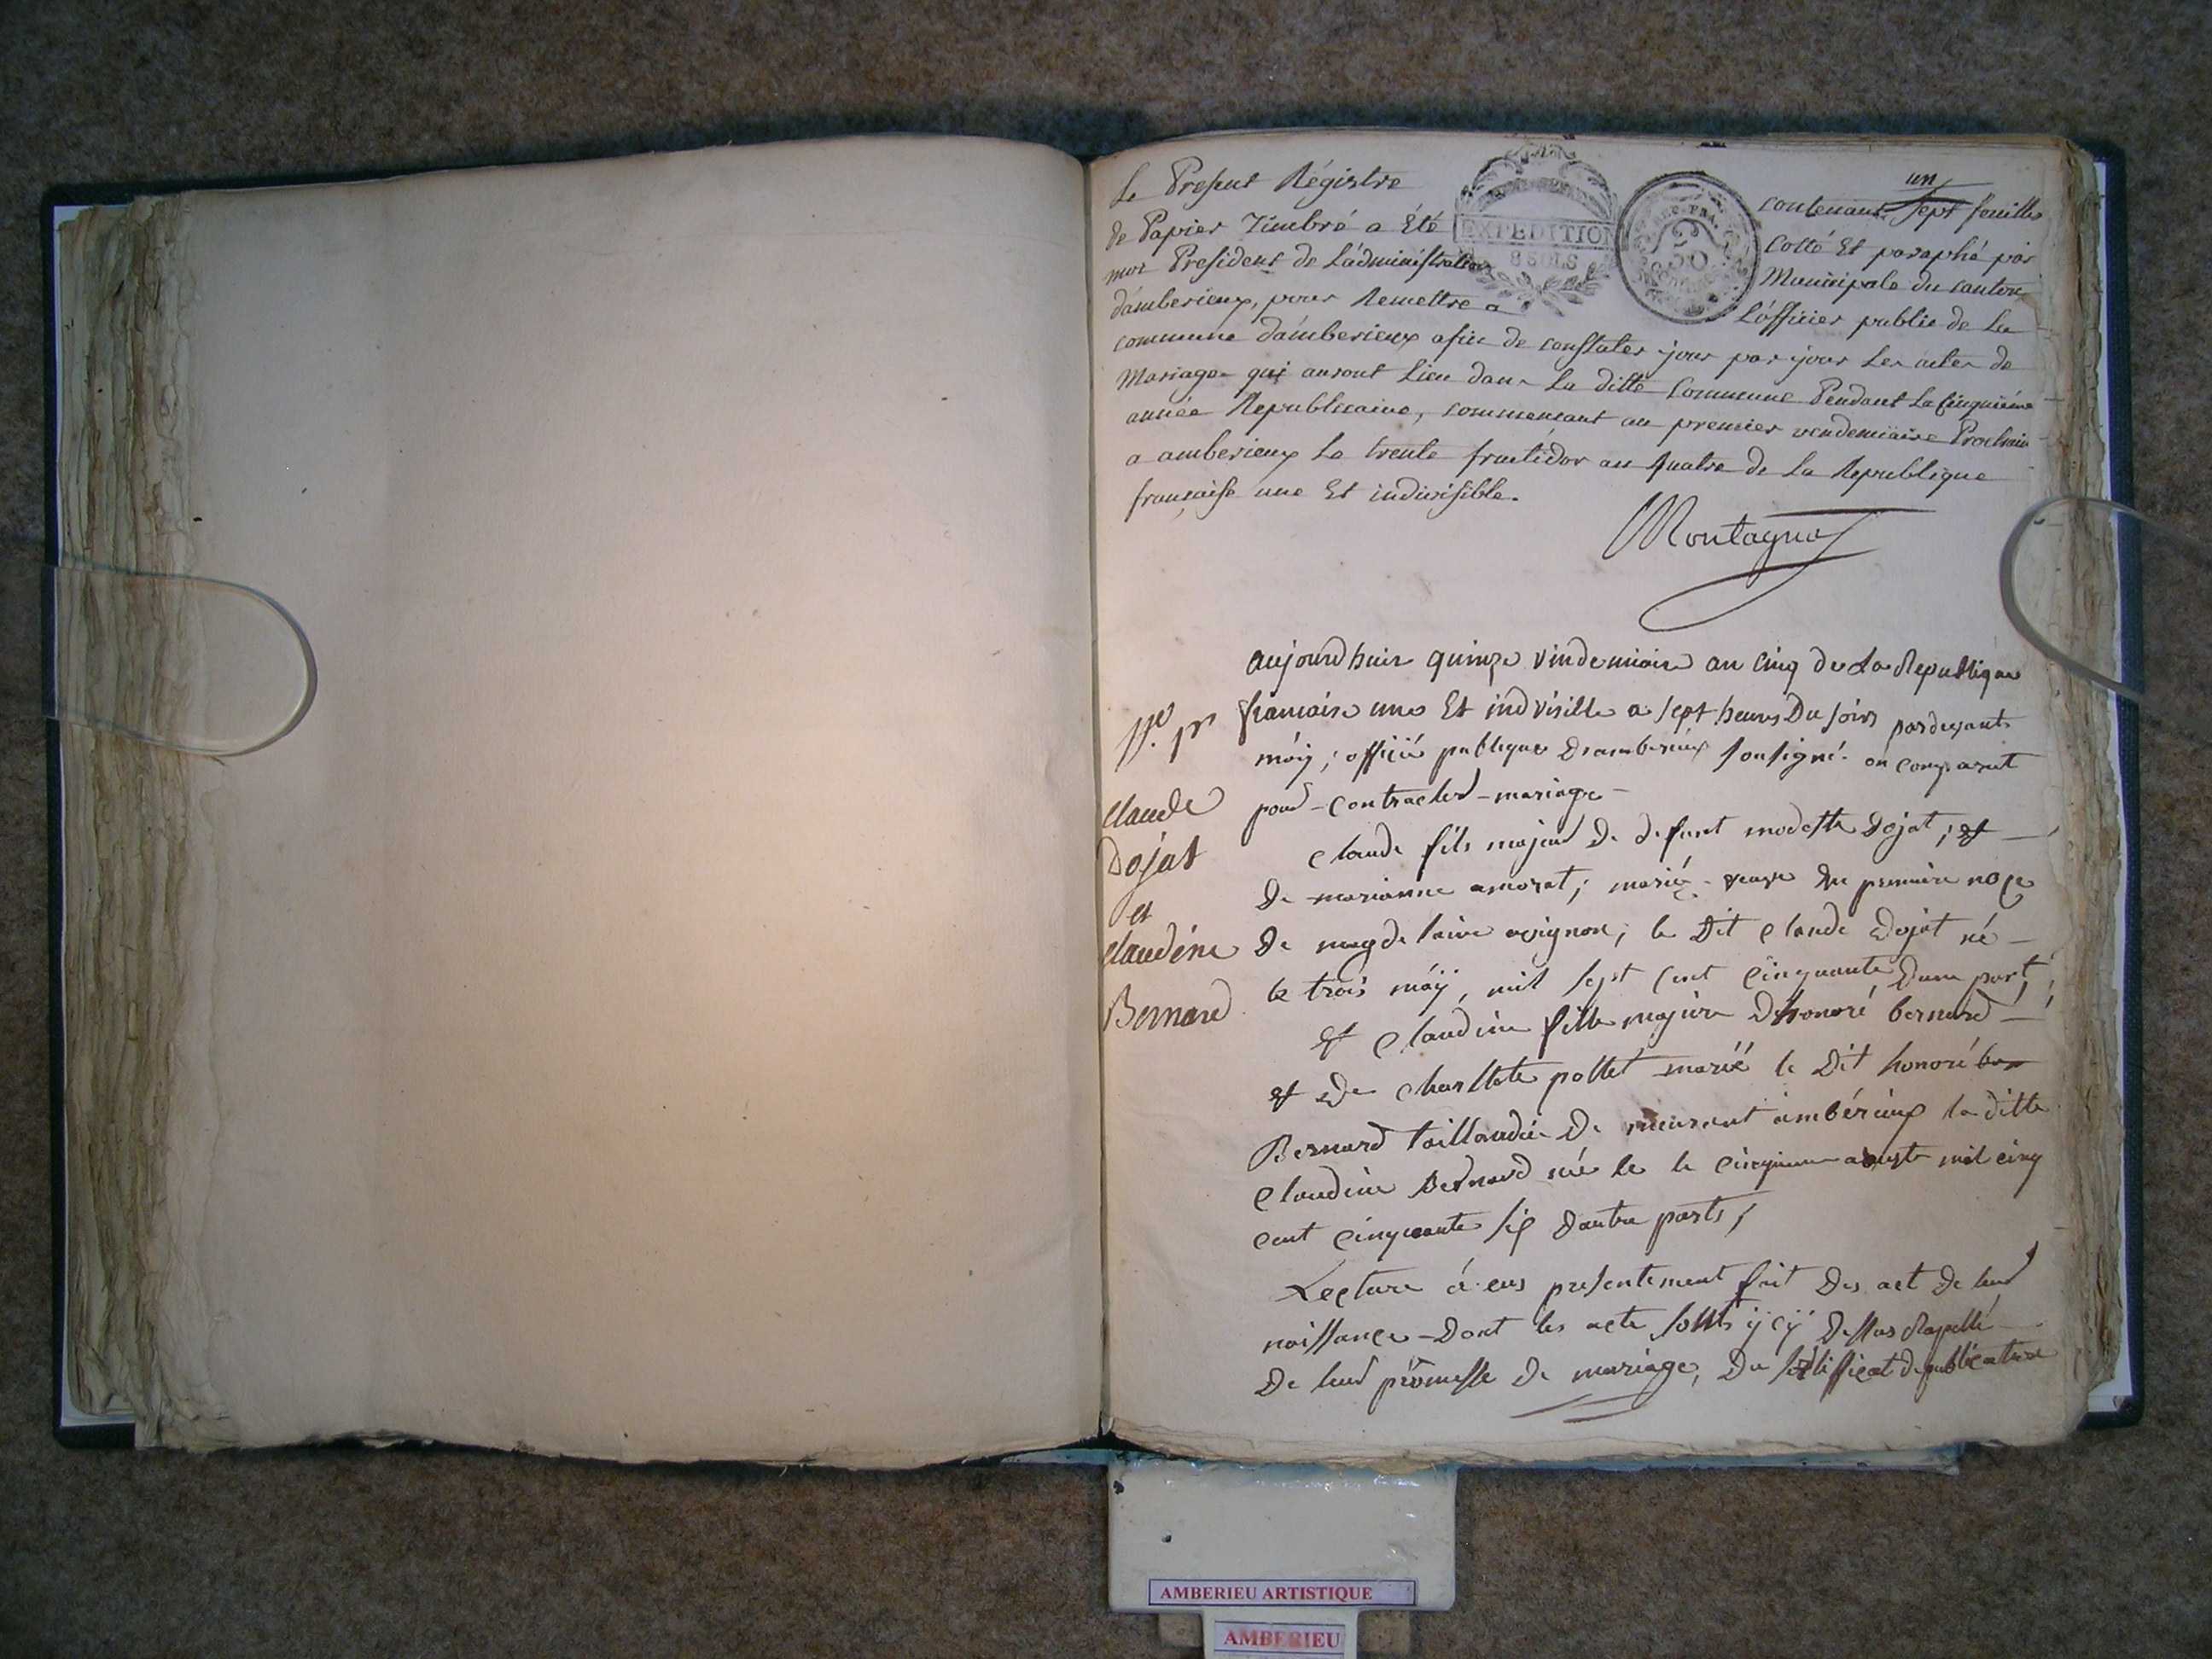 un
Le Present Régistre contenant sept feuilles
de Papier Timbré a Été Cotté Et paraphé par
moi President de L'administration Municipale du canton
d'amberieux, pour Remettre a L'officier public de La
commune d'amberieux afin de constater jour par jour Les actes de
Mariage qui auront Lieu dans La ditte Commune Pendant La Cinquiéme
année Republicaine, commencant au premier vendemiaire Prochain
a amberieux Le trente fructidor an quatre de La Republique
française une Et indivisible.
EXPEDITION
8 SOLS
REP. FRA.
50
Montagnaz
aujourdhuir quinze vindemiaire an Cinq de La Republique
francaise une Et indvisille a sept heures Du soirs pardevant
moÿ, officié publique dramberieux sousigné on comparut
pour contracter mariage
Claude fils majeur De defunt modeste Dojat, et
De marianne amorat; marié veuve En premiere noce
De magdelaine avignon; le Dit Claude Dojat né
le trois máÿ, mil sept Cent Cinquante Dune part,
Et Claudine fille majeure Dhonoré bernard
et De Charllote pollet marié le Dit honoré ber
Bernard taillandié De meurant ambérieux la ditte
Claudine Bernard née le le cinquieme aouste mil cinq
cent Cinquante six Dautre parts,
Lecture á eus presentement fait Des act De leur
naissance Dont les acte sonts ÿcÿ Dessus Rapellé
De leur promesse De mariage, Du sertifficat De publication
pp.e pr
Claude
Dojat
et
Claudéne
Bernard
AMBERIEU ARTISTIQUE
AMBERIEU